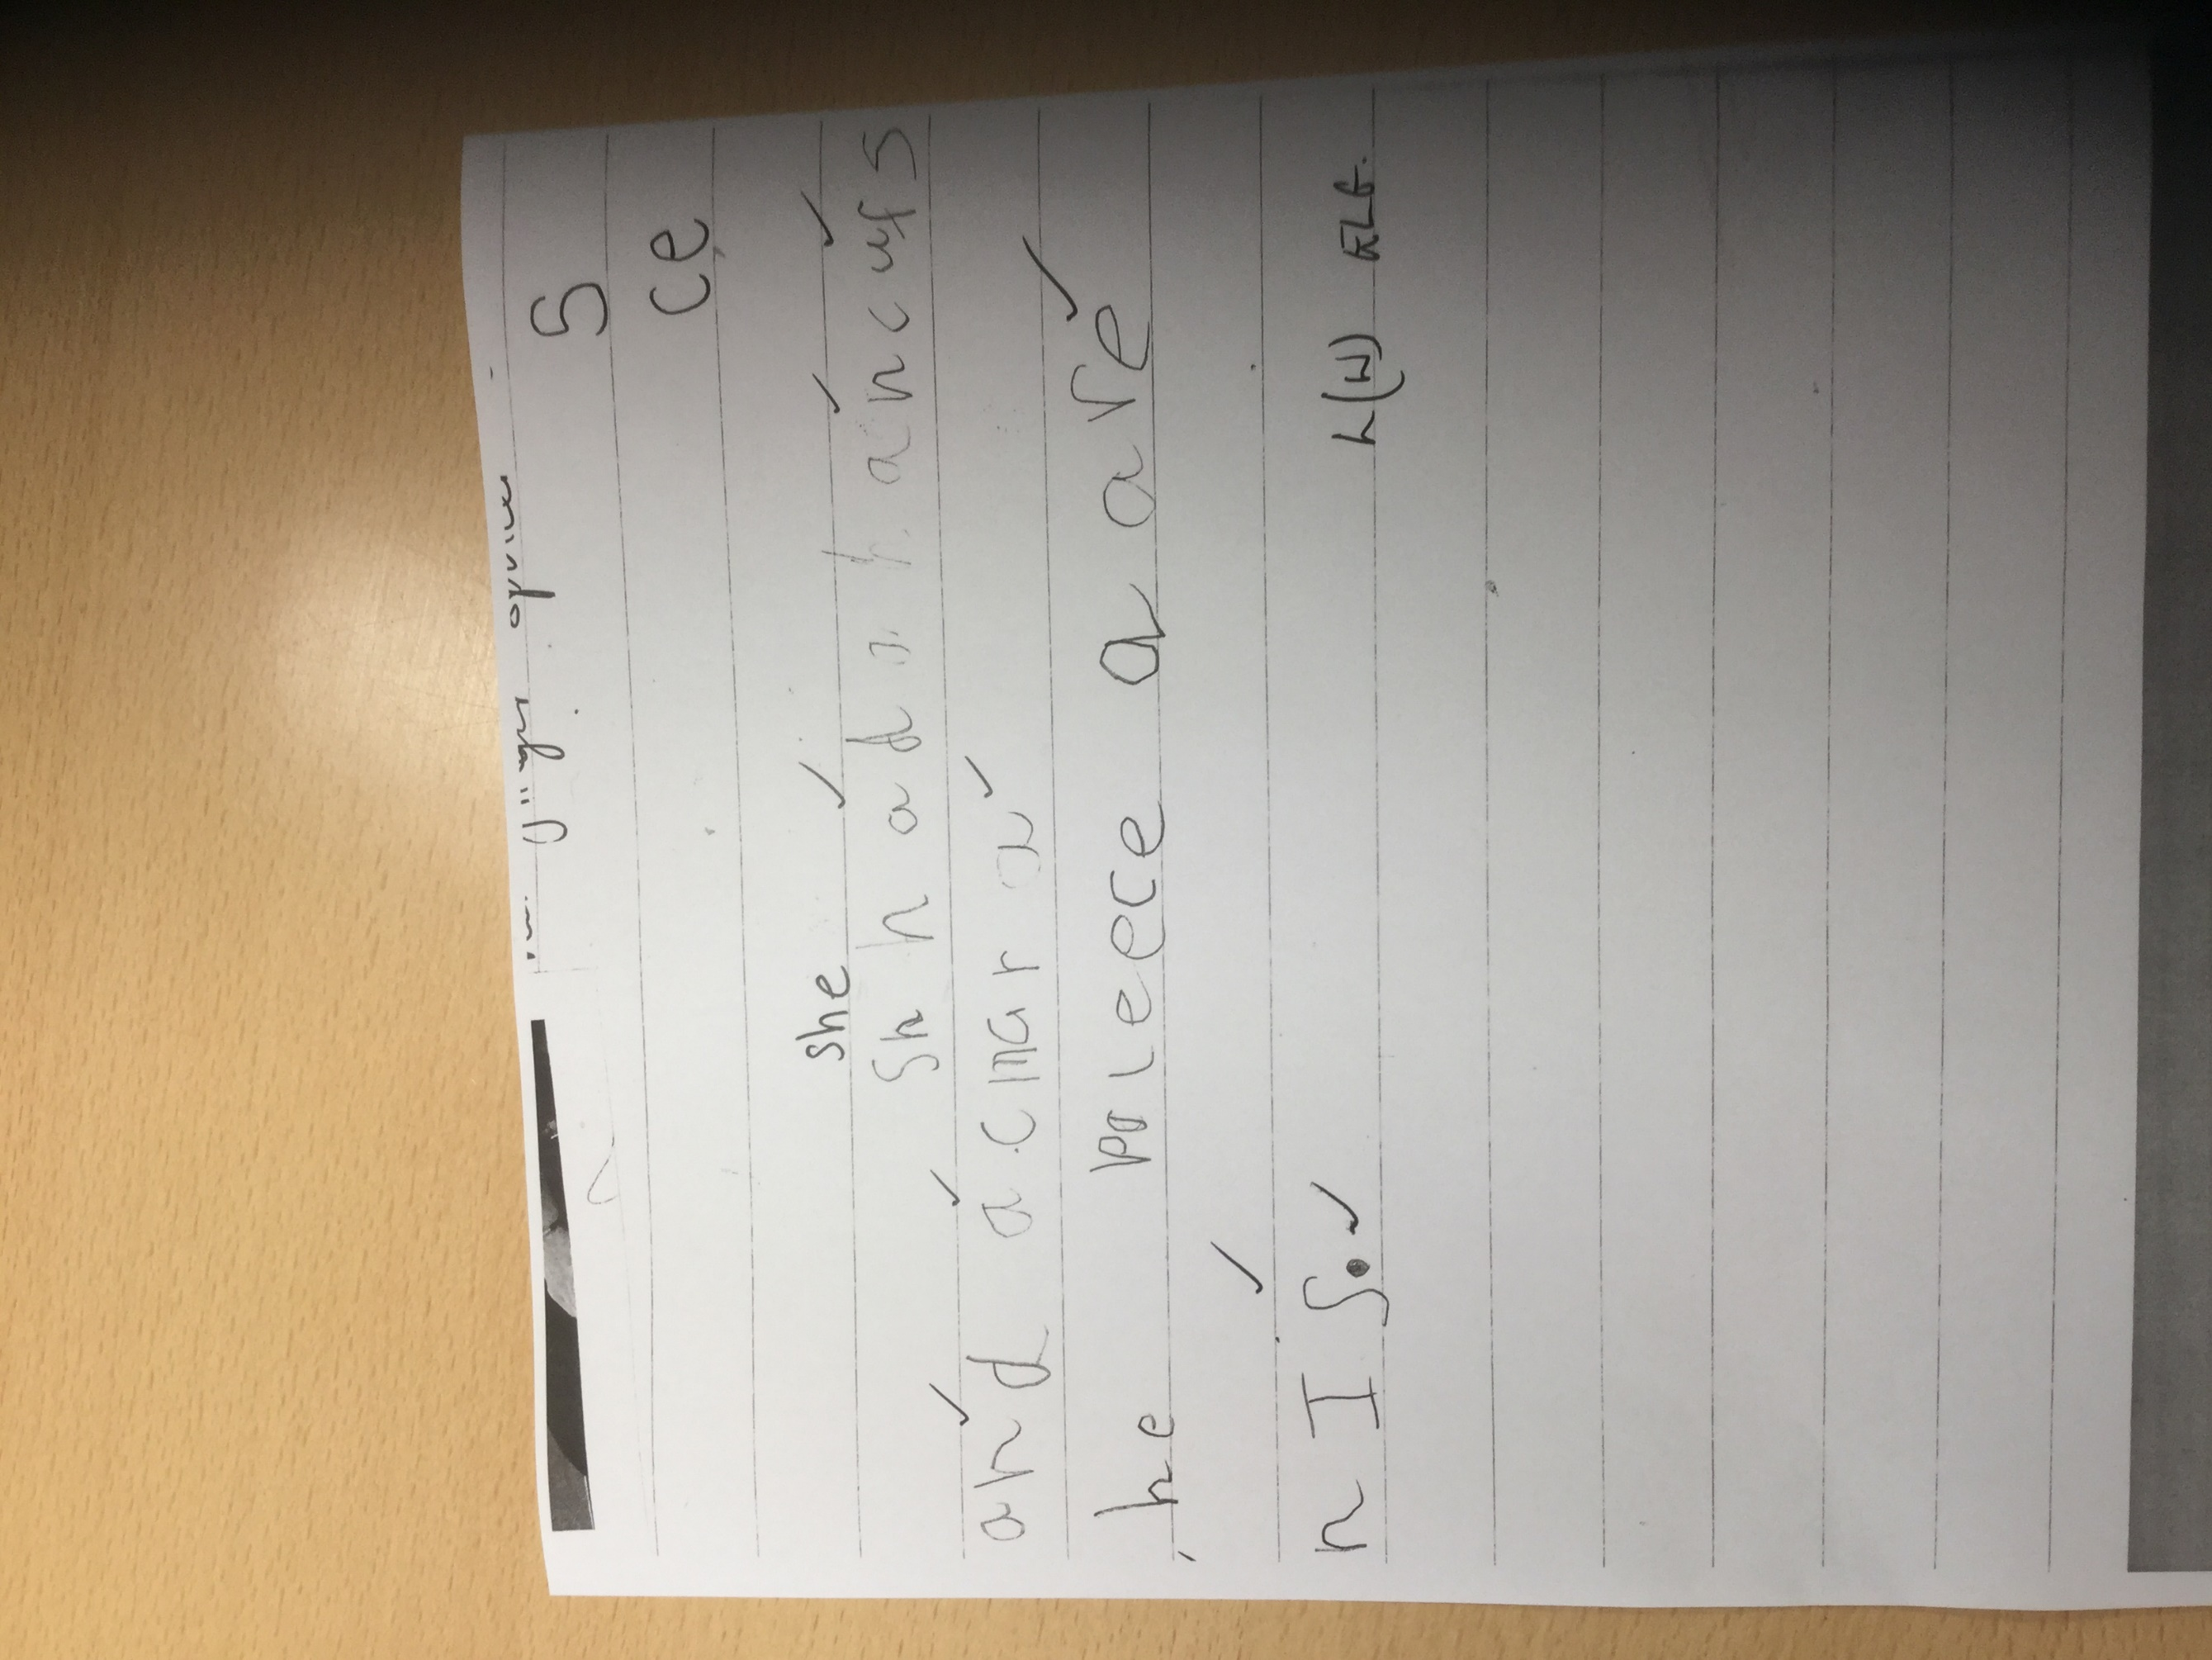 S
ce
she
sh had a hancufs
and a cmar a
he poleece a are
n I s.